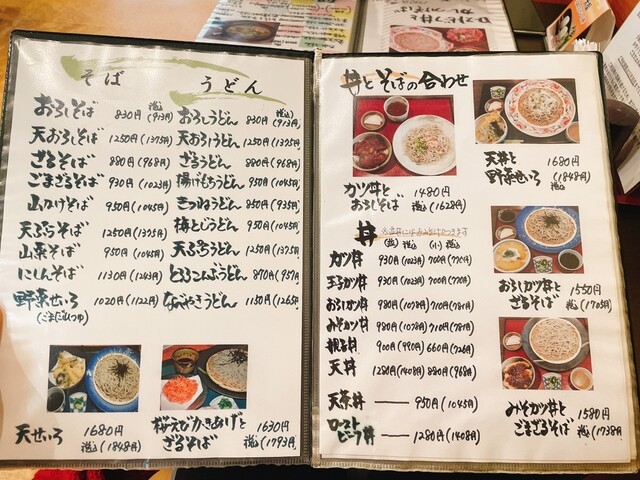 そば
おろしそば 830円 税込(913円)
天おろしそば 1250円(1375円)
ざるそば 880円(968円)
ごまざるそば 930円(1023円)
山かけそば 950円(1045円)
天ぷらそば 1250円(1375円)
山菜そば 950円(1045円)
にしんそば 1130円(1243円)
野菜せいろ 1020円(1122円)
(ごまだれつゆ)
うどん
おろしうどん 830円 税込(913円)
天おろうどん 1250円(1375円)
ざるうどん 880円(968円)
揚げもちうどん 950円(1045円)
きつねうどん 850円(935円)
梅とじうどん 950円(1045円)
天ぷらうどん 1250円(1375円)
とろろこんぶうどん 870円(957円)
なべやきうどん 1150円(1265円)
天せいろ 1680円
税込(1848円)
桜えびかきあげと
ざるそば
1630円
税込(1793円)
丼とそばの合わせ
カツ丼と
おろしそば
1480円
税込(1628円)
天丼と
野菜せいろ
1680円
(1848円)
税込
丼
(並)税込 (小)税込
カツ丼 930円(1023円) 700円(770円)
玉子カツ丼 930円(1023円) 700円(770円)
おろしカツ丼 980円(1078円) 710円(781円)
みそカツ丼 980円(1078円) 710円(781円)
親子丼 900円(990円) 660円(726円)
天丼 1280円(1408円) 880円(968円)
天茶丼 950円(1045円)
ローストビーフ丼 1280円(1408円)
おろしカツ丼と
ざるそば
1550円
税込(1705円)
みそカツ丼と
ごまざるそば
1580円
税込(1738円)